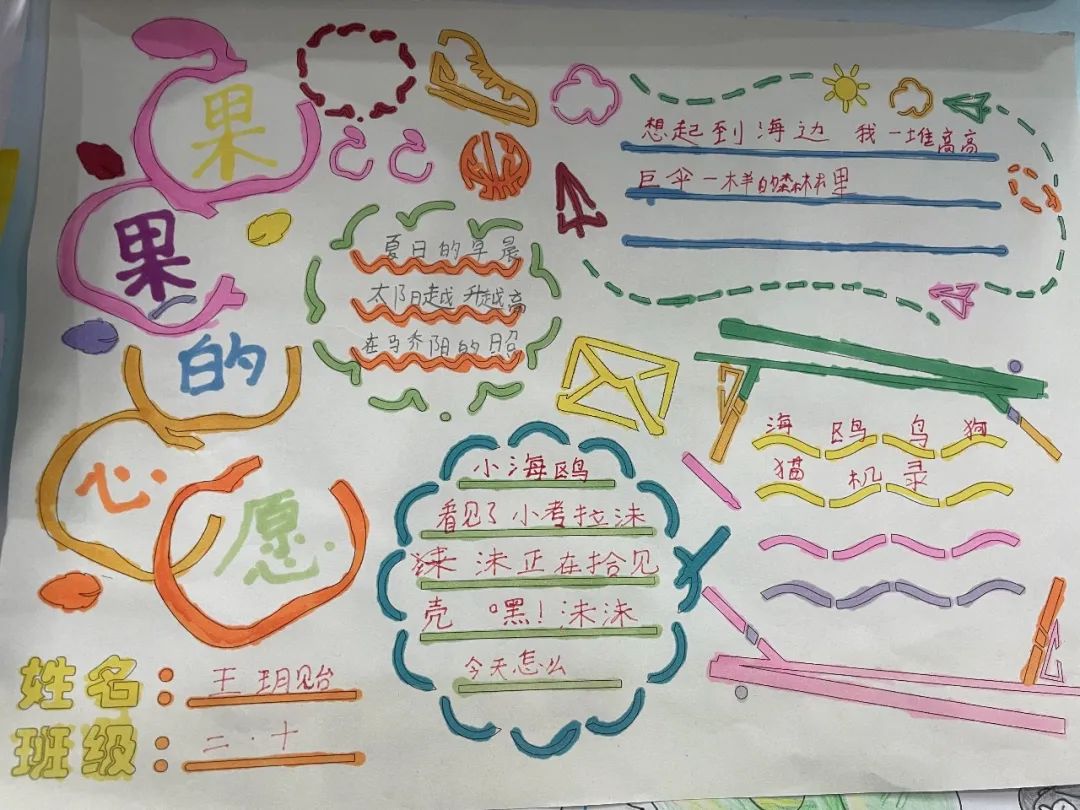 果果的心愿
想起到海边 我一堆高高
巨伞一样的森林里
夏日的早晨
太阳越升越高
在马乔阳的日照
小海鸥
看见了小考拉沫
沫正在拾见
壳 嘿!沫沫
今天怎么
海 鸥 鸟 狗
猫 机 录
姓名:王玥贻
班级:二·十